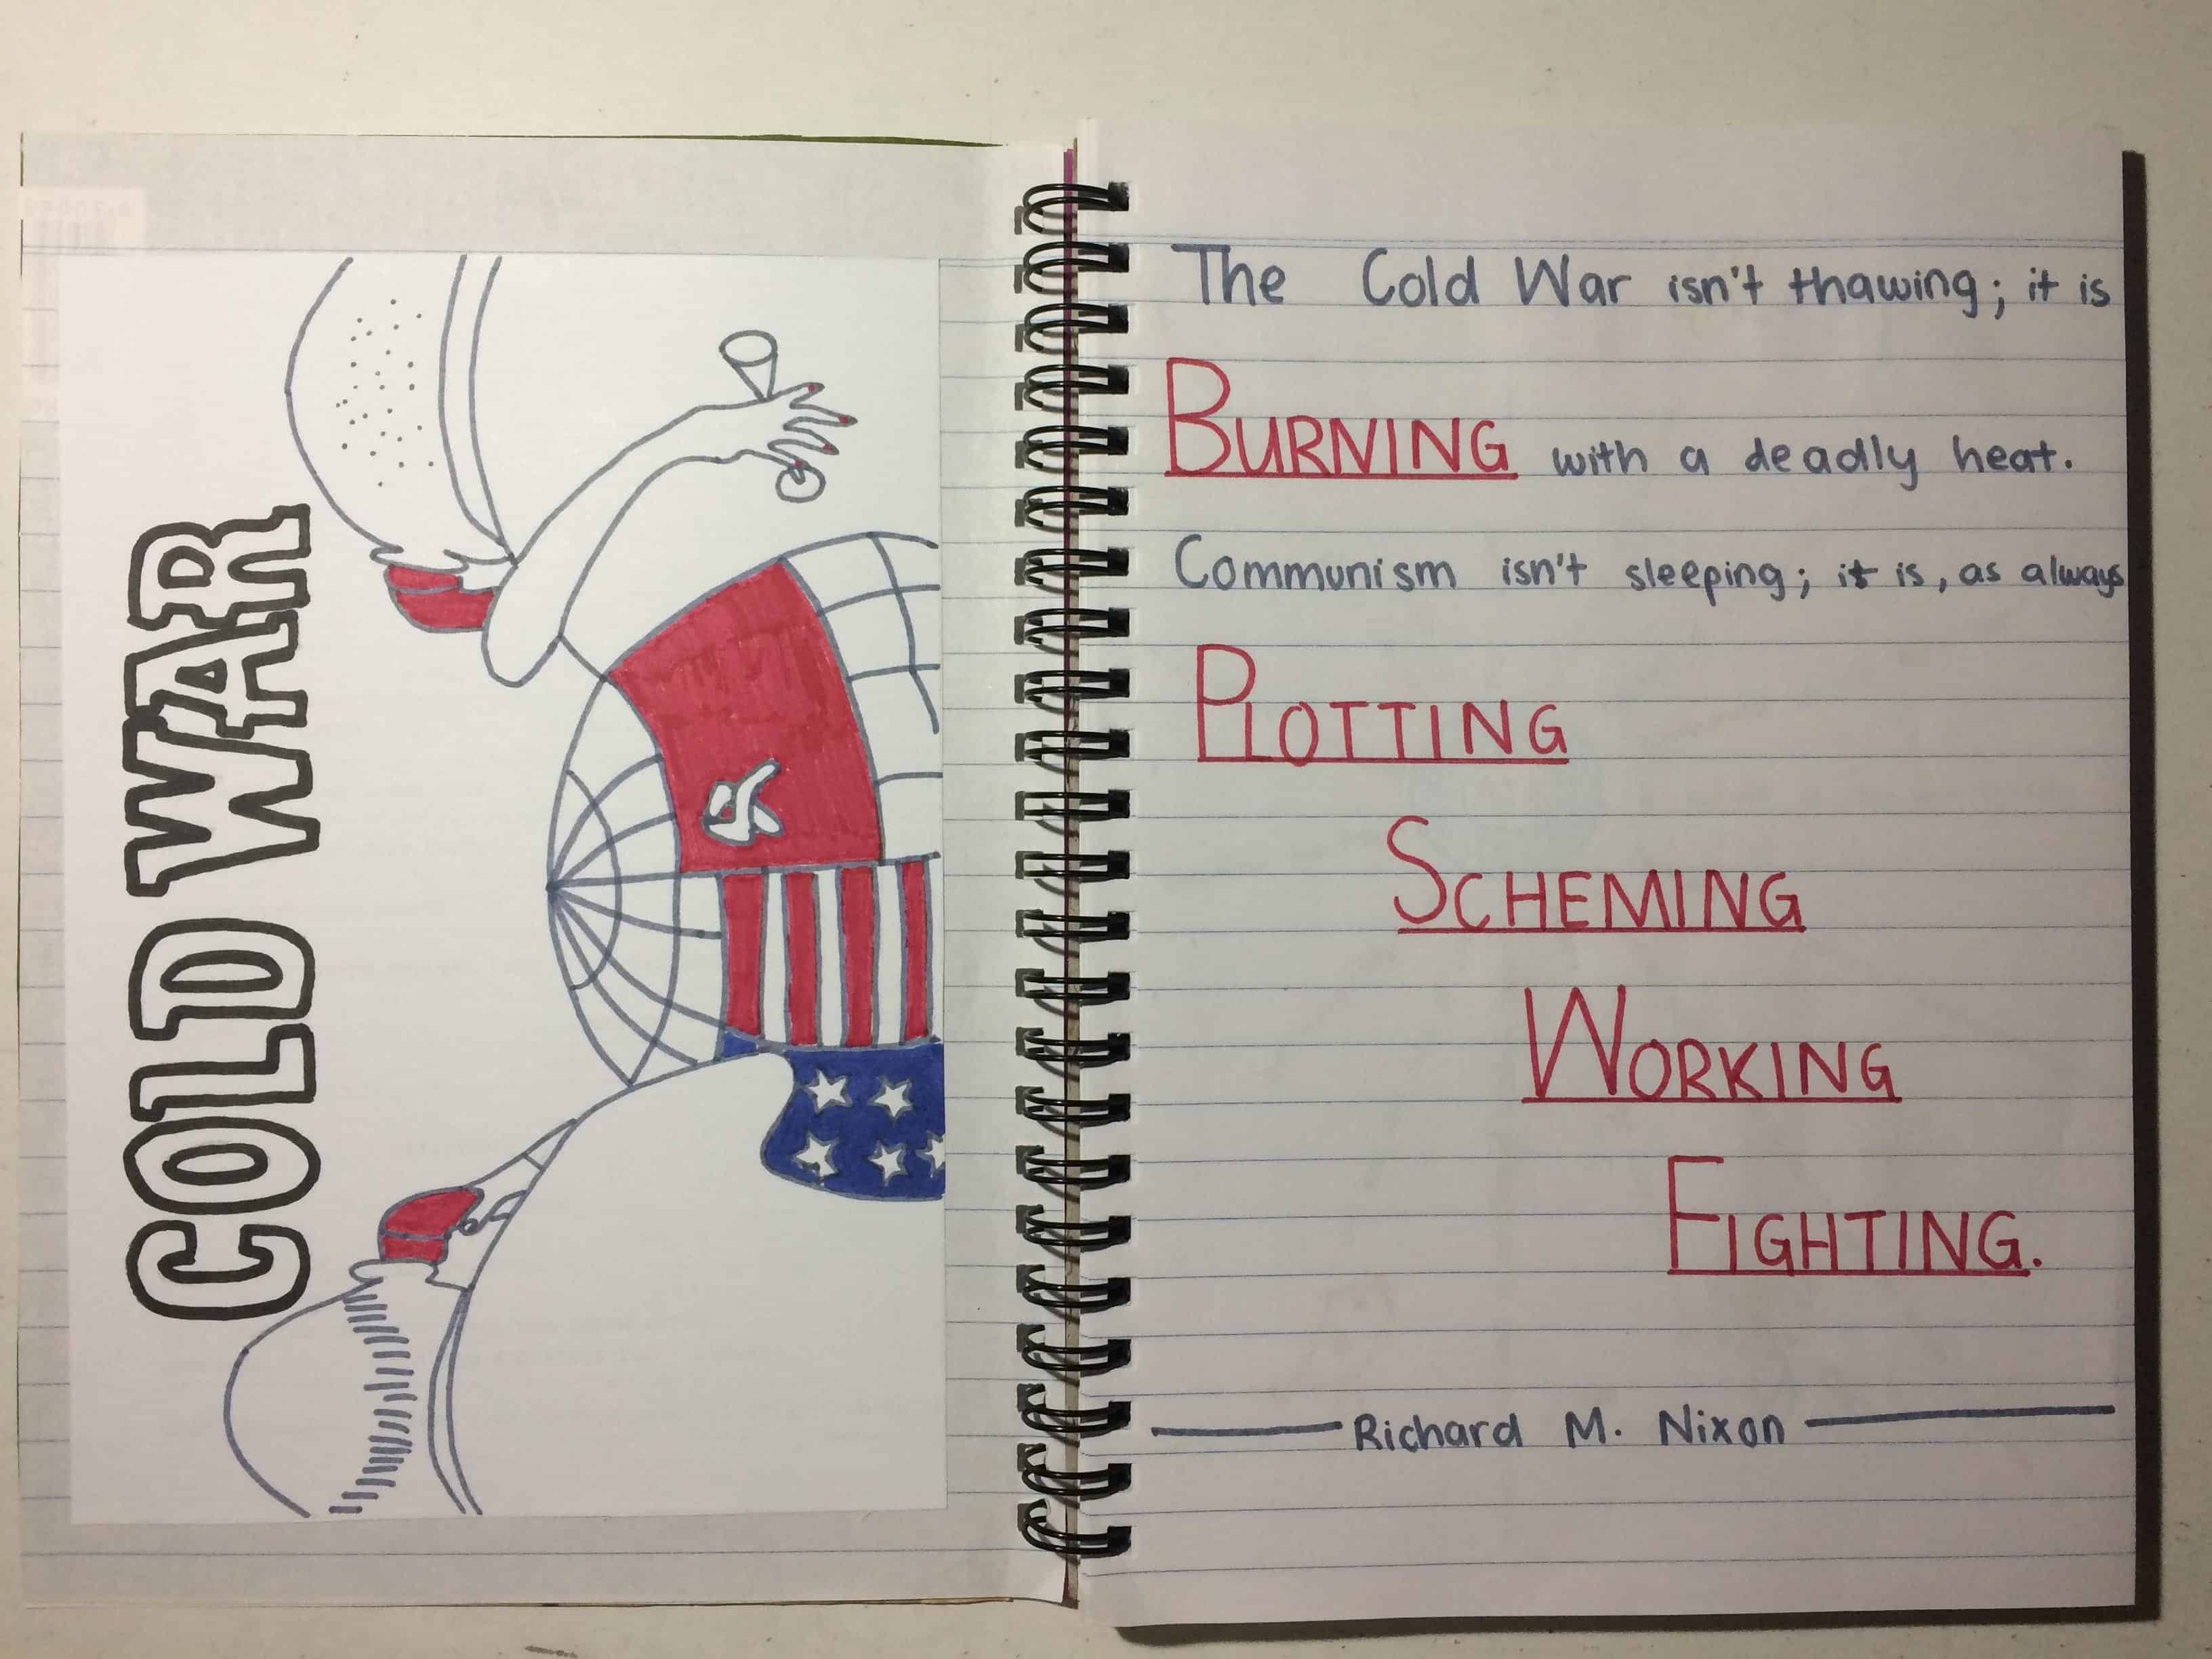 COLD WAR
The Cold War isn't thawing; it is
BURNING with a deadly heat.
Communism isn't sleeping; it is, as always
PLOTTING
SCHEMING
WORKING
FIGHTING.
Richard M. Nixon